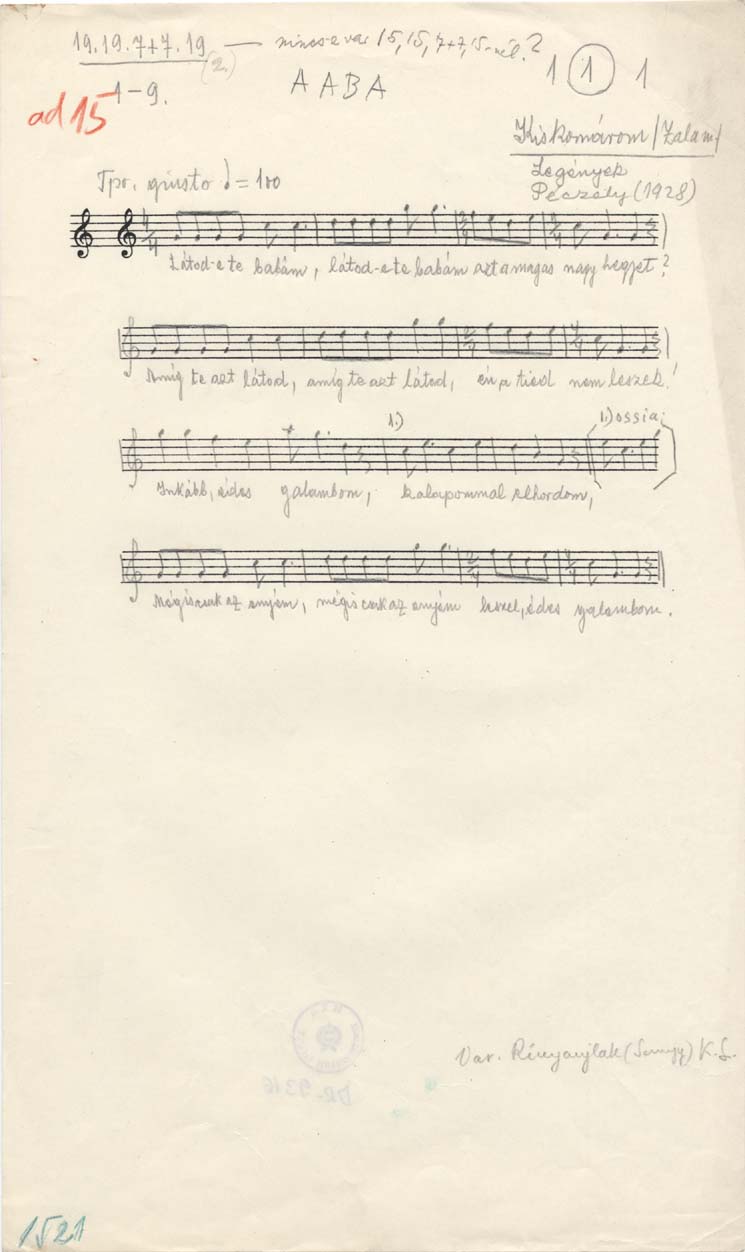 19.19.7+7.19 — nincs-e var 15,15,7+7,15-nél?
(2.)
1-9.
A A B A
1 1 1
ad 15
Kiskomárom /Zalam/
Legények
Péczely (1928)
Tpo. giusto ♩= 100
Látod-e te babám, látod-e te babám azt a magas nagy hegyet?
Amíg te azt látod, amíg te azt látod, én a tied nem leszek!
1.) 1.) ossia:
Inkább, édes galambom, kalapommal elhordom,
Mégis csak az enyém, mégis csak az enyém leszel, édes galambom.
Var. (Somogy) K.S.
BR-9316
1521